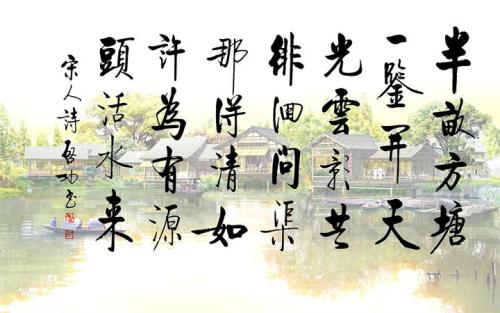 半畝方塘
一鑒开天
光雲影共
徘徊問渠
那得清如
許為有源
頭活水来
宋人詩啓功书